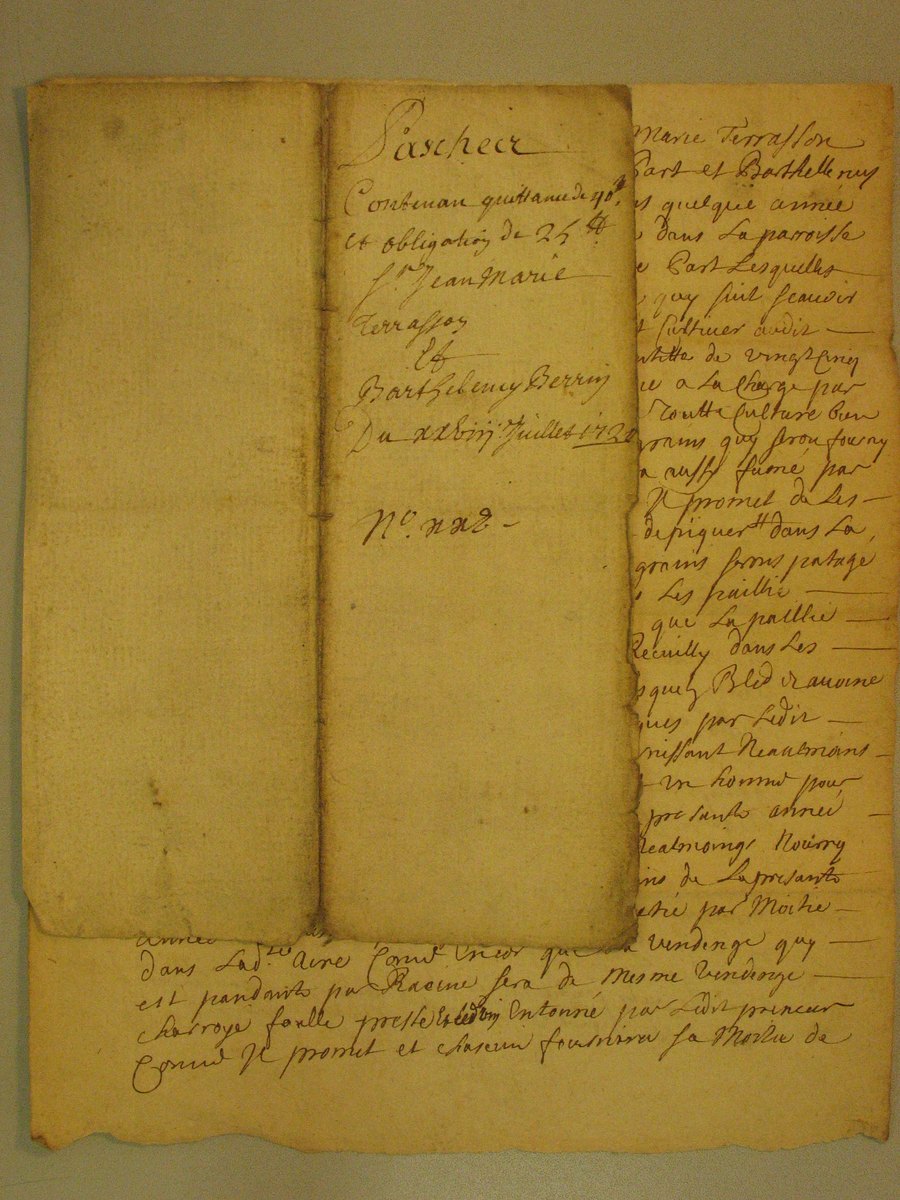 Pascheir
Contenan quittance de 90#
et obligation de 25#
Sr. Jean Marie
Terrasson
Et
Barthelemy Berrin
Du xxviij. Juillet 172
No. xx
Marie Terrasson
Part et Barthellemy
quelque année
dans La parroisse
Part Lesquelles
quy suit scavoir
Cultiver audit
de vingt Cinq
a La Charge par
Toutte Culture bien
grains quy seron fourny
a aussy fumé par
Il promet de Les
depiquer dans La
grains serons patagé
Les paillie
que La paillie
Recuilly dans Les
Bled et avoine
par Ledit
Neantmoins
un homme pour
presante année
Neatmoings Nourry
de La presante
par Moitié
année
dans Ladte Aire Comme Encor que La vendenge quy
est pandante par Racine sera de mesme Vendenge
charroye foulle presse Entonné par Ledit preneur
Comme Il promet et chascun fournira sa Moitie de